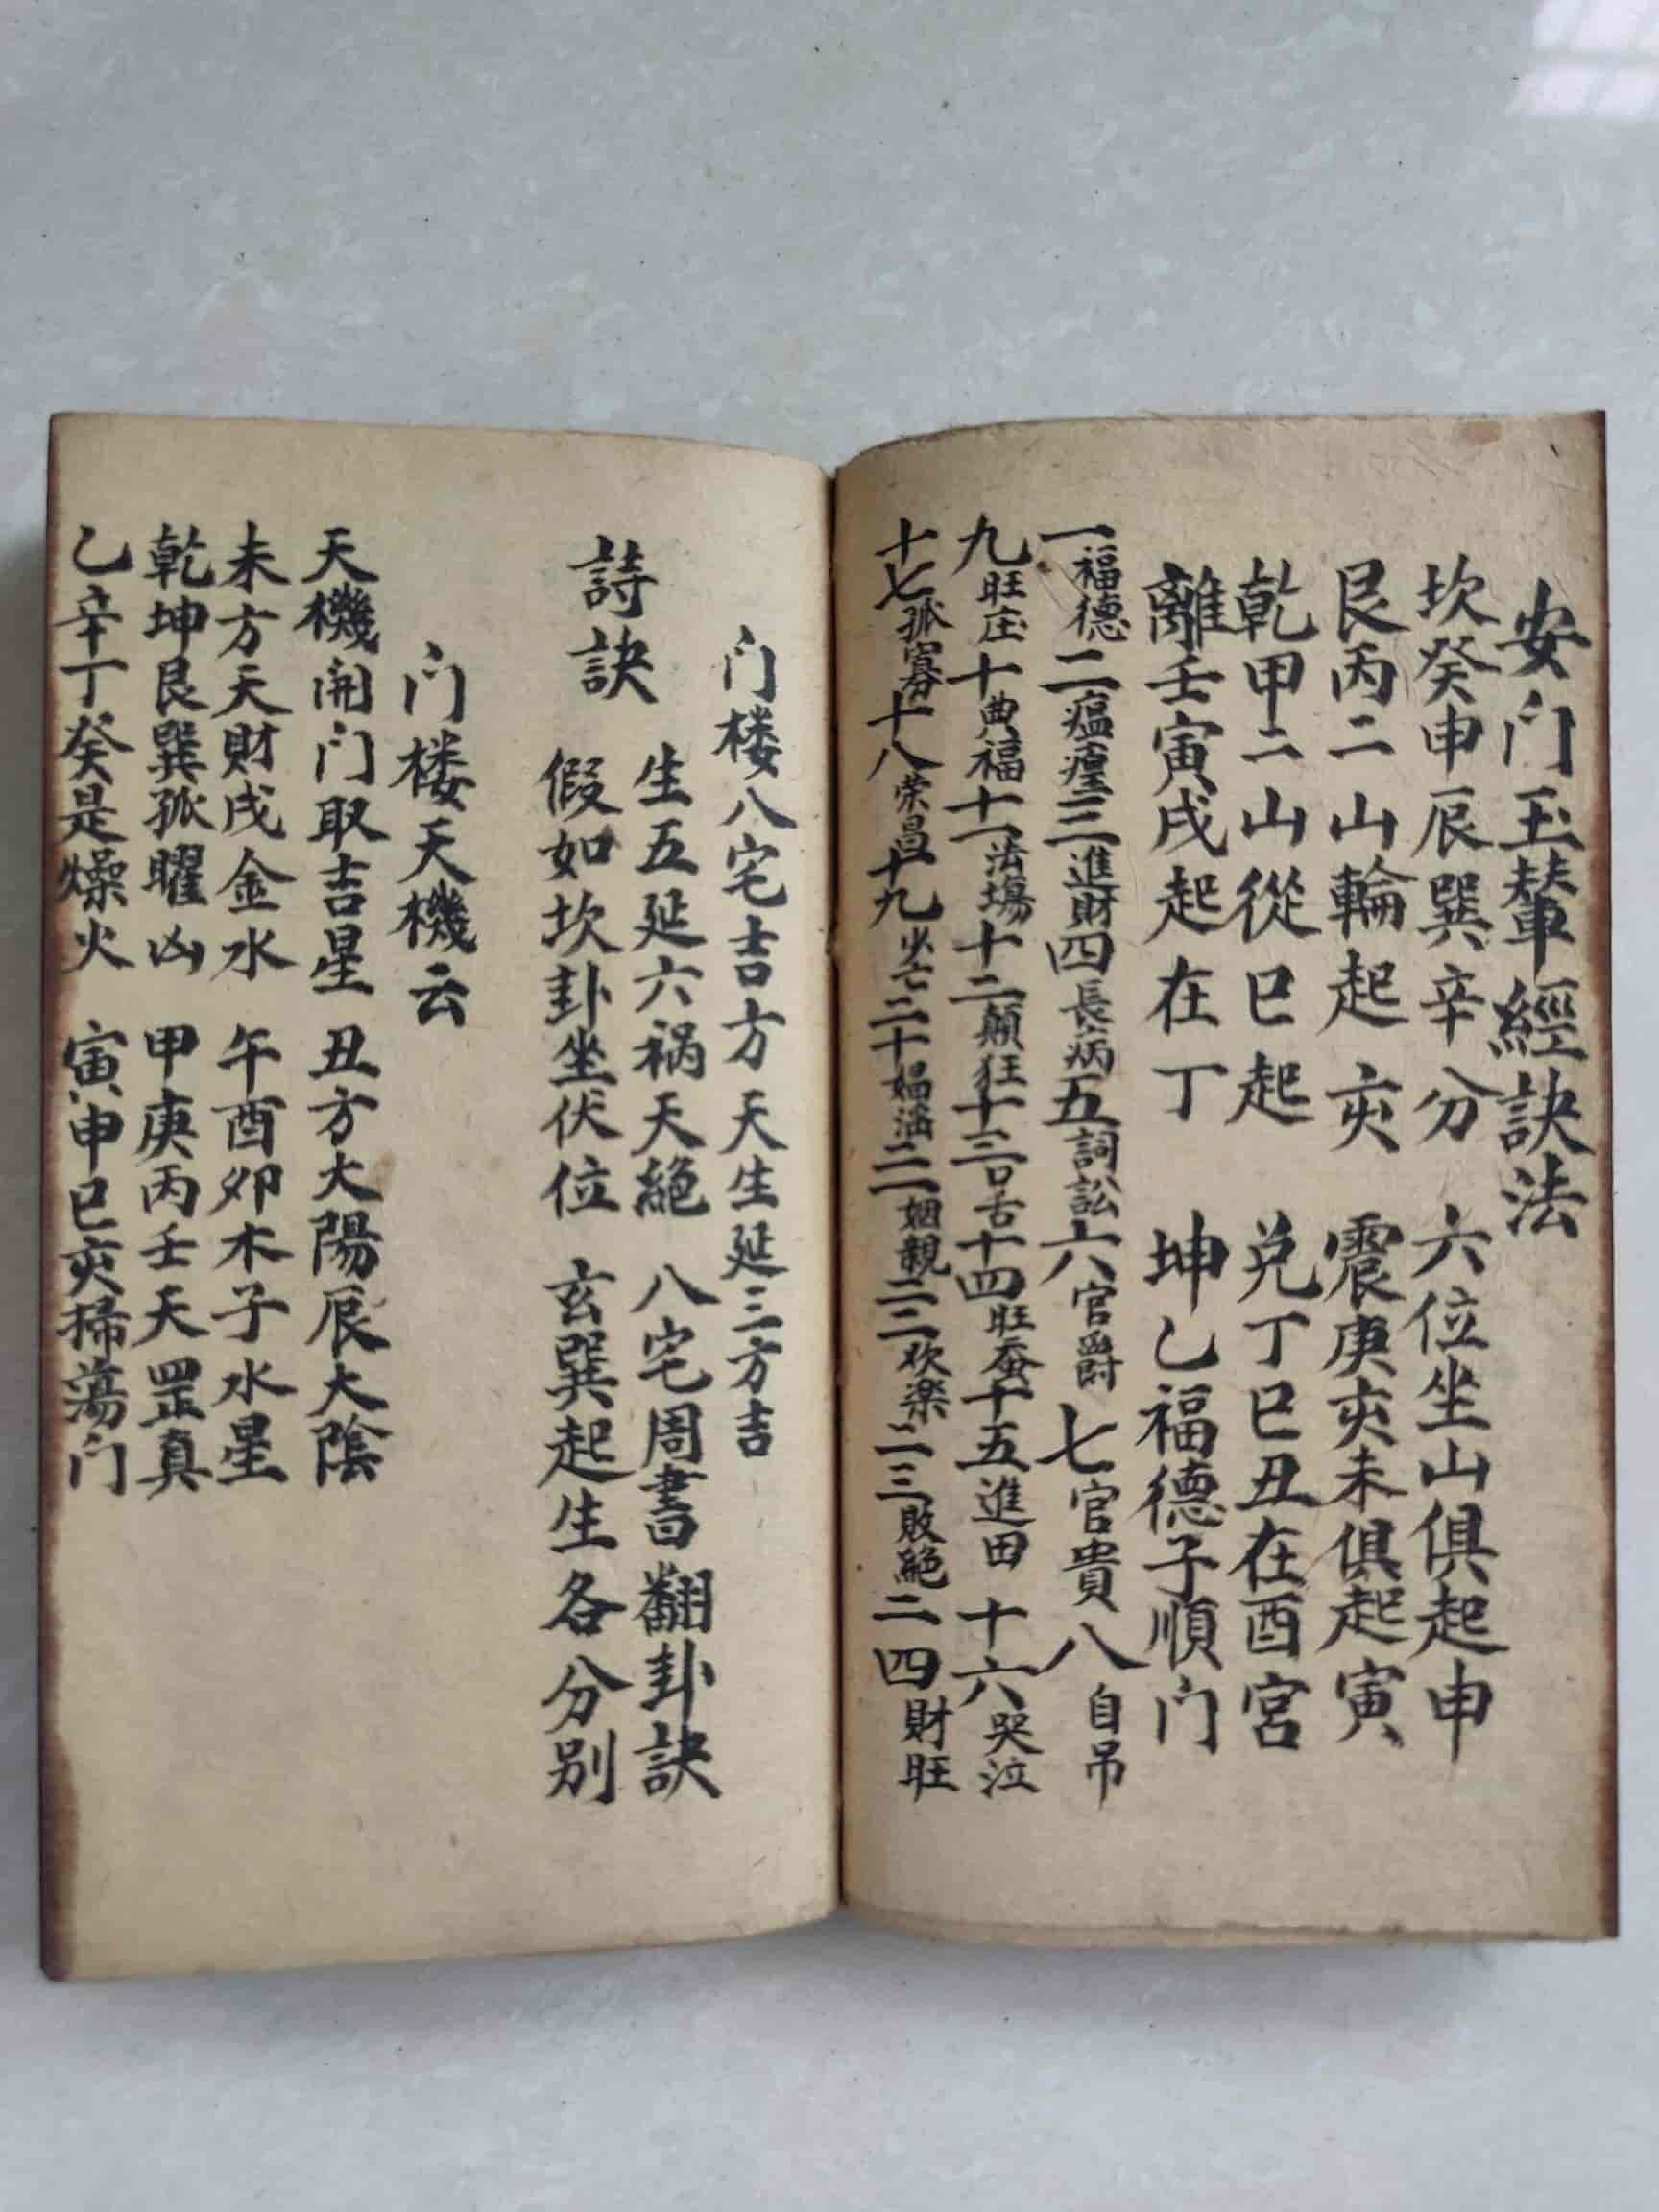 安门玉輦經訣法
坎癸申辰巽辛分 六位坐山俱起申
艮丙二山輪起亥 震庚亥未俱起寅
乾甲二山從巳起 兑丁巳丑在酉宮
離壬寅戌起在丁 坤乙福德子順门
一福德二瘟𤺊三進財四長病五詞訟六官爵七官貴八自吊
九旺庄十典福十一法場十二顛狂十三口舌十四旺蚕十五進田十六哭泣
十七孤寡十八荣昌十九少亡二十娼滛二一姻親二二欢楽二三敗絶二四財旺
门楼八宅吉方 天生延三方吉
詩訣
生五延六禍天絶 八宅周書翻卦訣
假如坎卦坐伏位 玄巽起生各分别
门楼天機云
天機開门取吉星 丑方大陽辰大陰
未方天財戌金水 午酉卯木子水星
乾坤艮巽孤曜凶 甲庚丙壬天罡真
乙辛丁癸是燥火 寅申巳亥掃蕩门